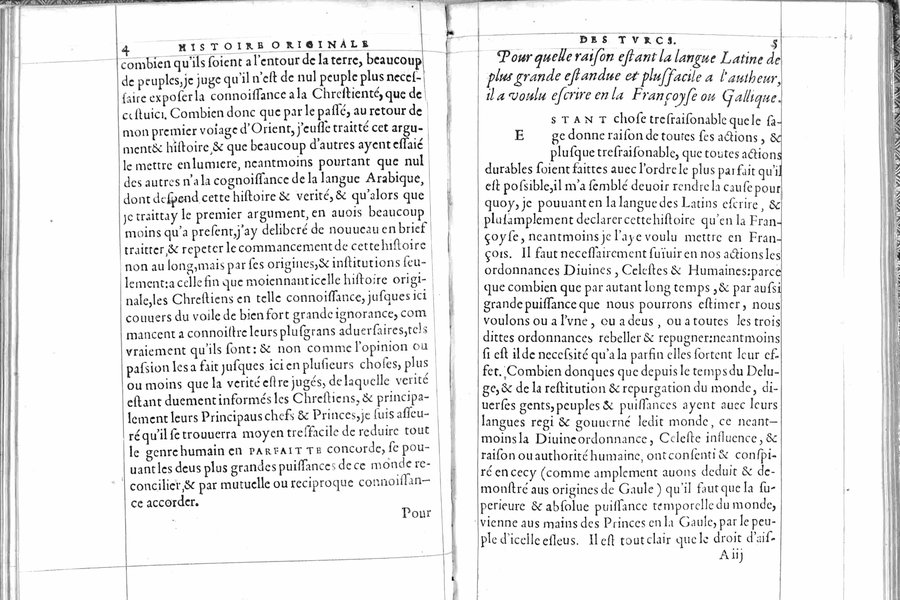 4 HISTOIRE ORIGINALE
combien qu'ils soient a l'entour de la terre, beaucoup
de peuples, je juge qu'il n'est de nul peuple plus neceſ-
ſaire expoſer la connoiſſance a la Chreſtienté, que de
ceſtuici. Combien donc que par le paſſé, au retour de
mon premier voiage d'Orient, j'euſſe traitté cet argu-
ment & hiſtoire, & que beaucoup d'autres ayent eſſaié
le mettre en lumiere, neantmoins pourtant que nul
des autres n'a la cognoiſſance de la langue Arabique,
dont deſpend cette hiſtoire & verité, & qu'alors que
je traittay le premier argument, en auois beaucoup
moins qu'a preſent, j'ay deliberé de nouueau en brief
traitter, & repeter le commancement de cette hiſtoire
non au long, mais par ſes origines, & inſtitutions ſeu-
lement: a celle fin que moiennant icelle hiſtoire origi-
nale, les Chreſtiens en telle connoiſſance, juſques ici
couuers du voile de bien fort grande ignorance, com
mancent a connoiſtre leurs pluſgrans aduerſaires, tels
vraiement qu'ils ſont: & non comme l'opinion ou
paſſion les a fait juſques ici en pluſieurs choſes, plus
ou moins que la verité eſtre jugés, de laquelle verité
eſtant duement informés les Chreſtiens, & principa-
lement leurs Principaus chefs & Princes, je ſuis aſſeu-
ré qu'il ſe trouuera moyen treſfacile de reduire tout
le genre humain en PARFAITTE concorde, ſe pou-
uant les deus plus grandes puiſſances de ce monde re-
concilier, & par mutuelle ou reciproque connoiſſan-
ce accorder.
Pour
DES TVRCS. 5
Pour quelle raiſon eſtant la langue Latine de
plus grande eſtandue et pluſfacile a l'autheur,
il a voulu eſcrire en la Françoyſe ou Gallique.
ESTANT choſe treſraiſonable que le ſa-
ge donne raiſon de toutes ſes actions, &
pluſque treſraiſonable, que toutes actions
durables ſoient faittes auec l'ordre le plus parfait qu'il
eſt poſſible, il m'a ſemblé deuoir rendre la cauſe pour
quoy, je pouuant en la langue des Latins eſcrire, &
pluſamplement declarer cette hiſtoire qu'en la Fran-
çoyſe, neantmoins je l'aye voulu mettre en Fran-
çois. Il faut neceſſairement ſuiuir en nos actions les
ordonnances Diuines, Celeſtes & Humaines: parce
que combien que par autant long temps, & par auſſi
grande puiſſance que nous pourrons eſtimer, nous
voulons ou a l'vne, ou a deus, ou a toutes les trois
dittes ordonnances rebeller & repugner: neantmoins
ſi eſt il de neceſſité qu'a la parfin elles ſortent leur ef-
fet. Combien donques que depuis le temps du Delu-
ge, & de la reſtitution & repurgation du monde, di-
uerſes gents, peuples & puiſſances ayent auec leurs
langues regi & gouuerné ledit monde, ce neant-
moins la Diuine ordonnance, Celeſte influence, &
raiſon ou authorité humaine, ont conſenti & conſpi-
ré en cecy (comme amplement auons deduit & de-
monſtré aus origines de Gaule) qu'il faut que la ſu-
perieure & abſolue puiſſance temporelle du monde,
vienne aus mains des Princes en la Gaule, par le peu-
ple d'icelle eſleus. Il eſt tout clair que le droit d'aiſ-
A iij